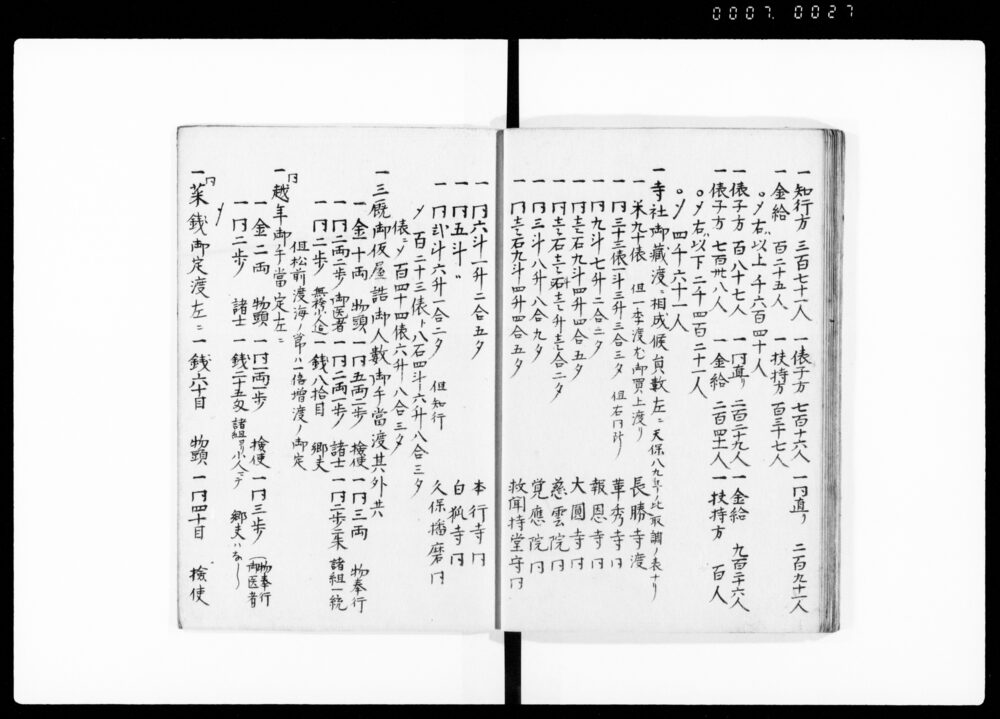 0007 0027
一知行方 三百七十一人 一俵子方 七百十六人 一円直リ 二百九十一人
一金給 百二十五人 一扶持方 百三十七人
〆右以上 千六百四十人
一俵子方 百八十七人 一円直リ 二百二十九人 一金給 九百三十六人
一俵子方 七百卅八人 一金給 二百四十人 一扶持方 百人
〆右以下二千四百二十一人
〆四千六十一人
一寺社御蔵渡ニ相成候員数左ニ 天保八九年ノ比取調ノ表ナリ
一米九十俵 但一季渡尤御買上渡リ 長勝寺渡
一円三十三俵一斗三升三合三夕 但右円断 華秀寺円
一円九斗七升二合二夕 報恩寺円
一円壱石九斗四升四合五夕 大圓寺円
一円壱石壱斗壱升壱合二夕 慈雲院円
一円三斗八升八合九夕 覚應院円
一円壱石九斗四升四合五夕 救聞持堂守円
一円六斗一升二合五夕 本行寺円
一円五斗 白狐寺円
一円弐斗六升一合二夕 但知行 久保播磨円
〆百二十三俵ト八石四斗六升八合三夕
俵ニ〆百四十四俵六升八合三夕
一三厩御仮屋詰御人数御手當渡其外共
一金十両 物頭 一円五両二歩 検使 一円三両 物奉行
一円二両二歩 御医者 一円二両一歩 諸士 一円二歩二朱 諸組一統
一円二歩 無袴小人迄 一銭八拾目 郷夫
但松前渡海ノ節ハ一倍増渡ノ御定
一円越年御手當定左ニ
一金二両 物頭 一円一両一歩 検使 一円三歩 物奉行 御医者
一円二歩 諸士 一銭二十五匁 諸組ヨリ小人マテ 郷夫ハなし
一円菜銭御定渡左ニ 一銭六十目 物頭 一円四十目 検使